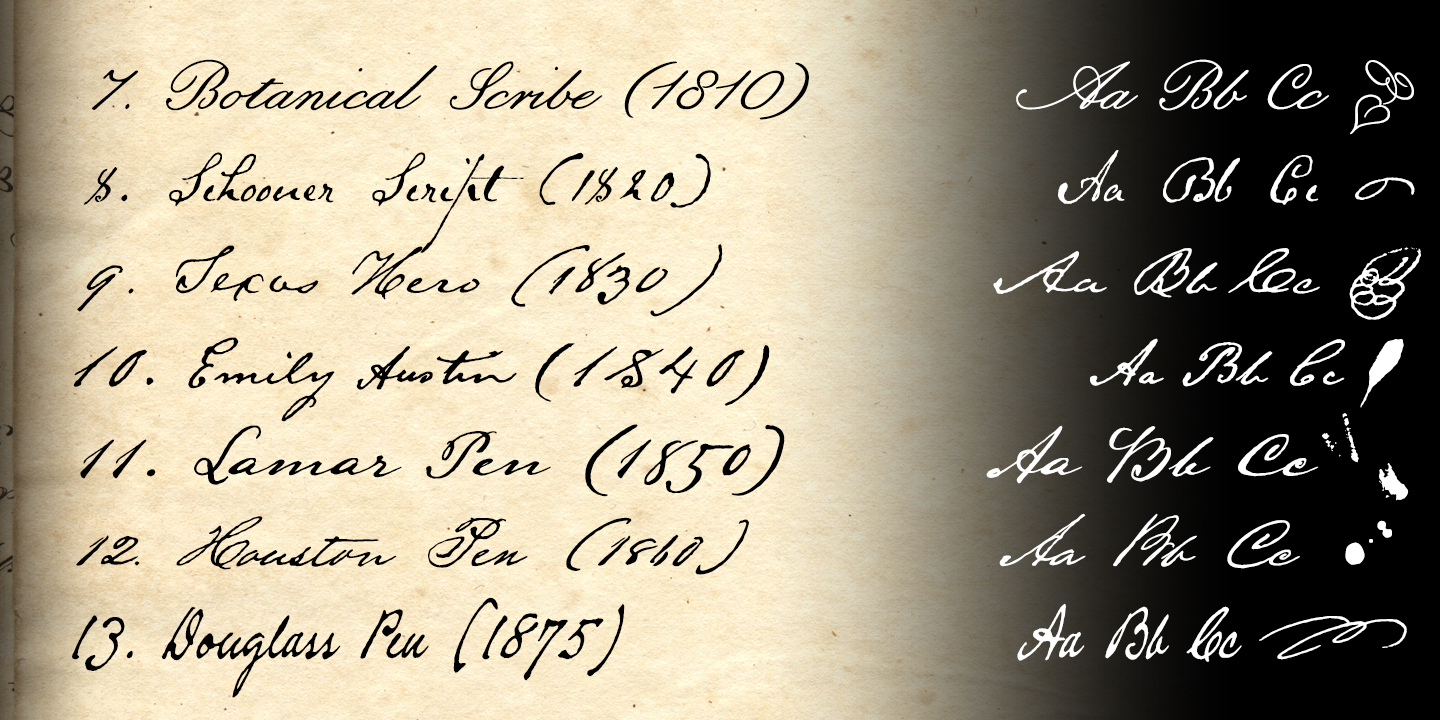 7. Botanical Scribe (1810) Aa Bb Cc
8. Schooner Script (1820) Aa Bb Cc
9. Texas Hero (1830) Aa Bb Cc
10. Emily Austin (1840) Aa Bb Cc
11. Lamar Pen (1850) Aa Bb Cc
12. Houston Pen (1860) Aa Bb Cc
13. Douglass Pen (1875) Aa Bb Cc